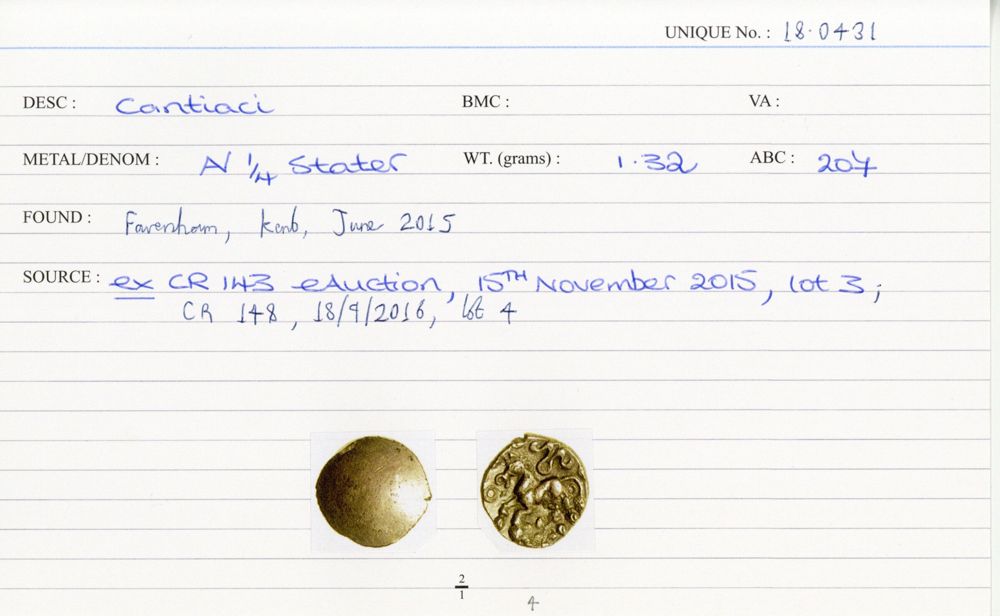 UNIQUE No. : 18·0431
DESC : Cantiaci BMC : VA :
METAL/DENOM : N 1/4 Stater WT. (grams) : 1·32 ABC : 204
FOUND : Faversham, Kent, June 2015
SOURCE : ex CR 143 eAuction, 15TH November 2015, lot 3;
CR 148, 18/9/2016, lot 4
2/1
4